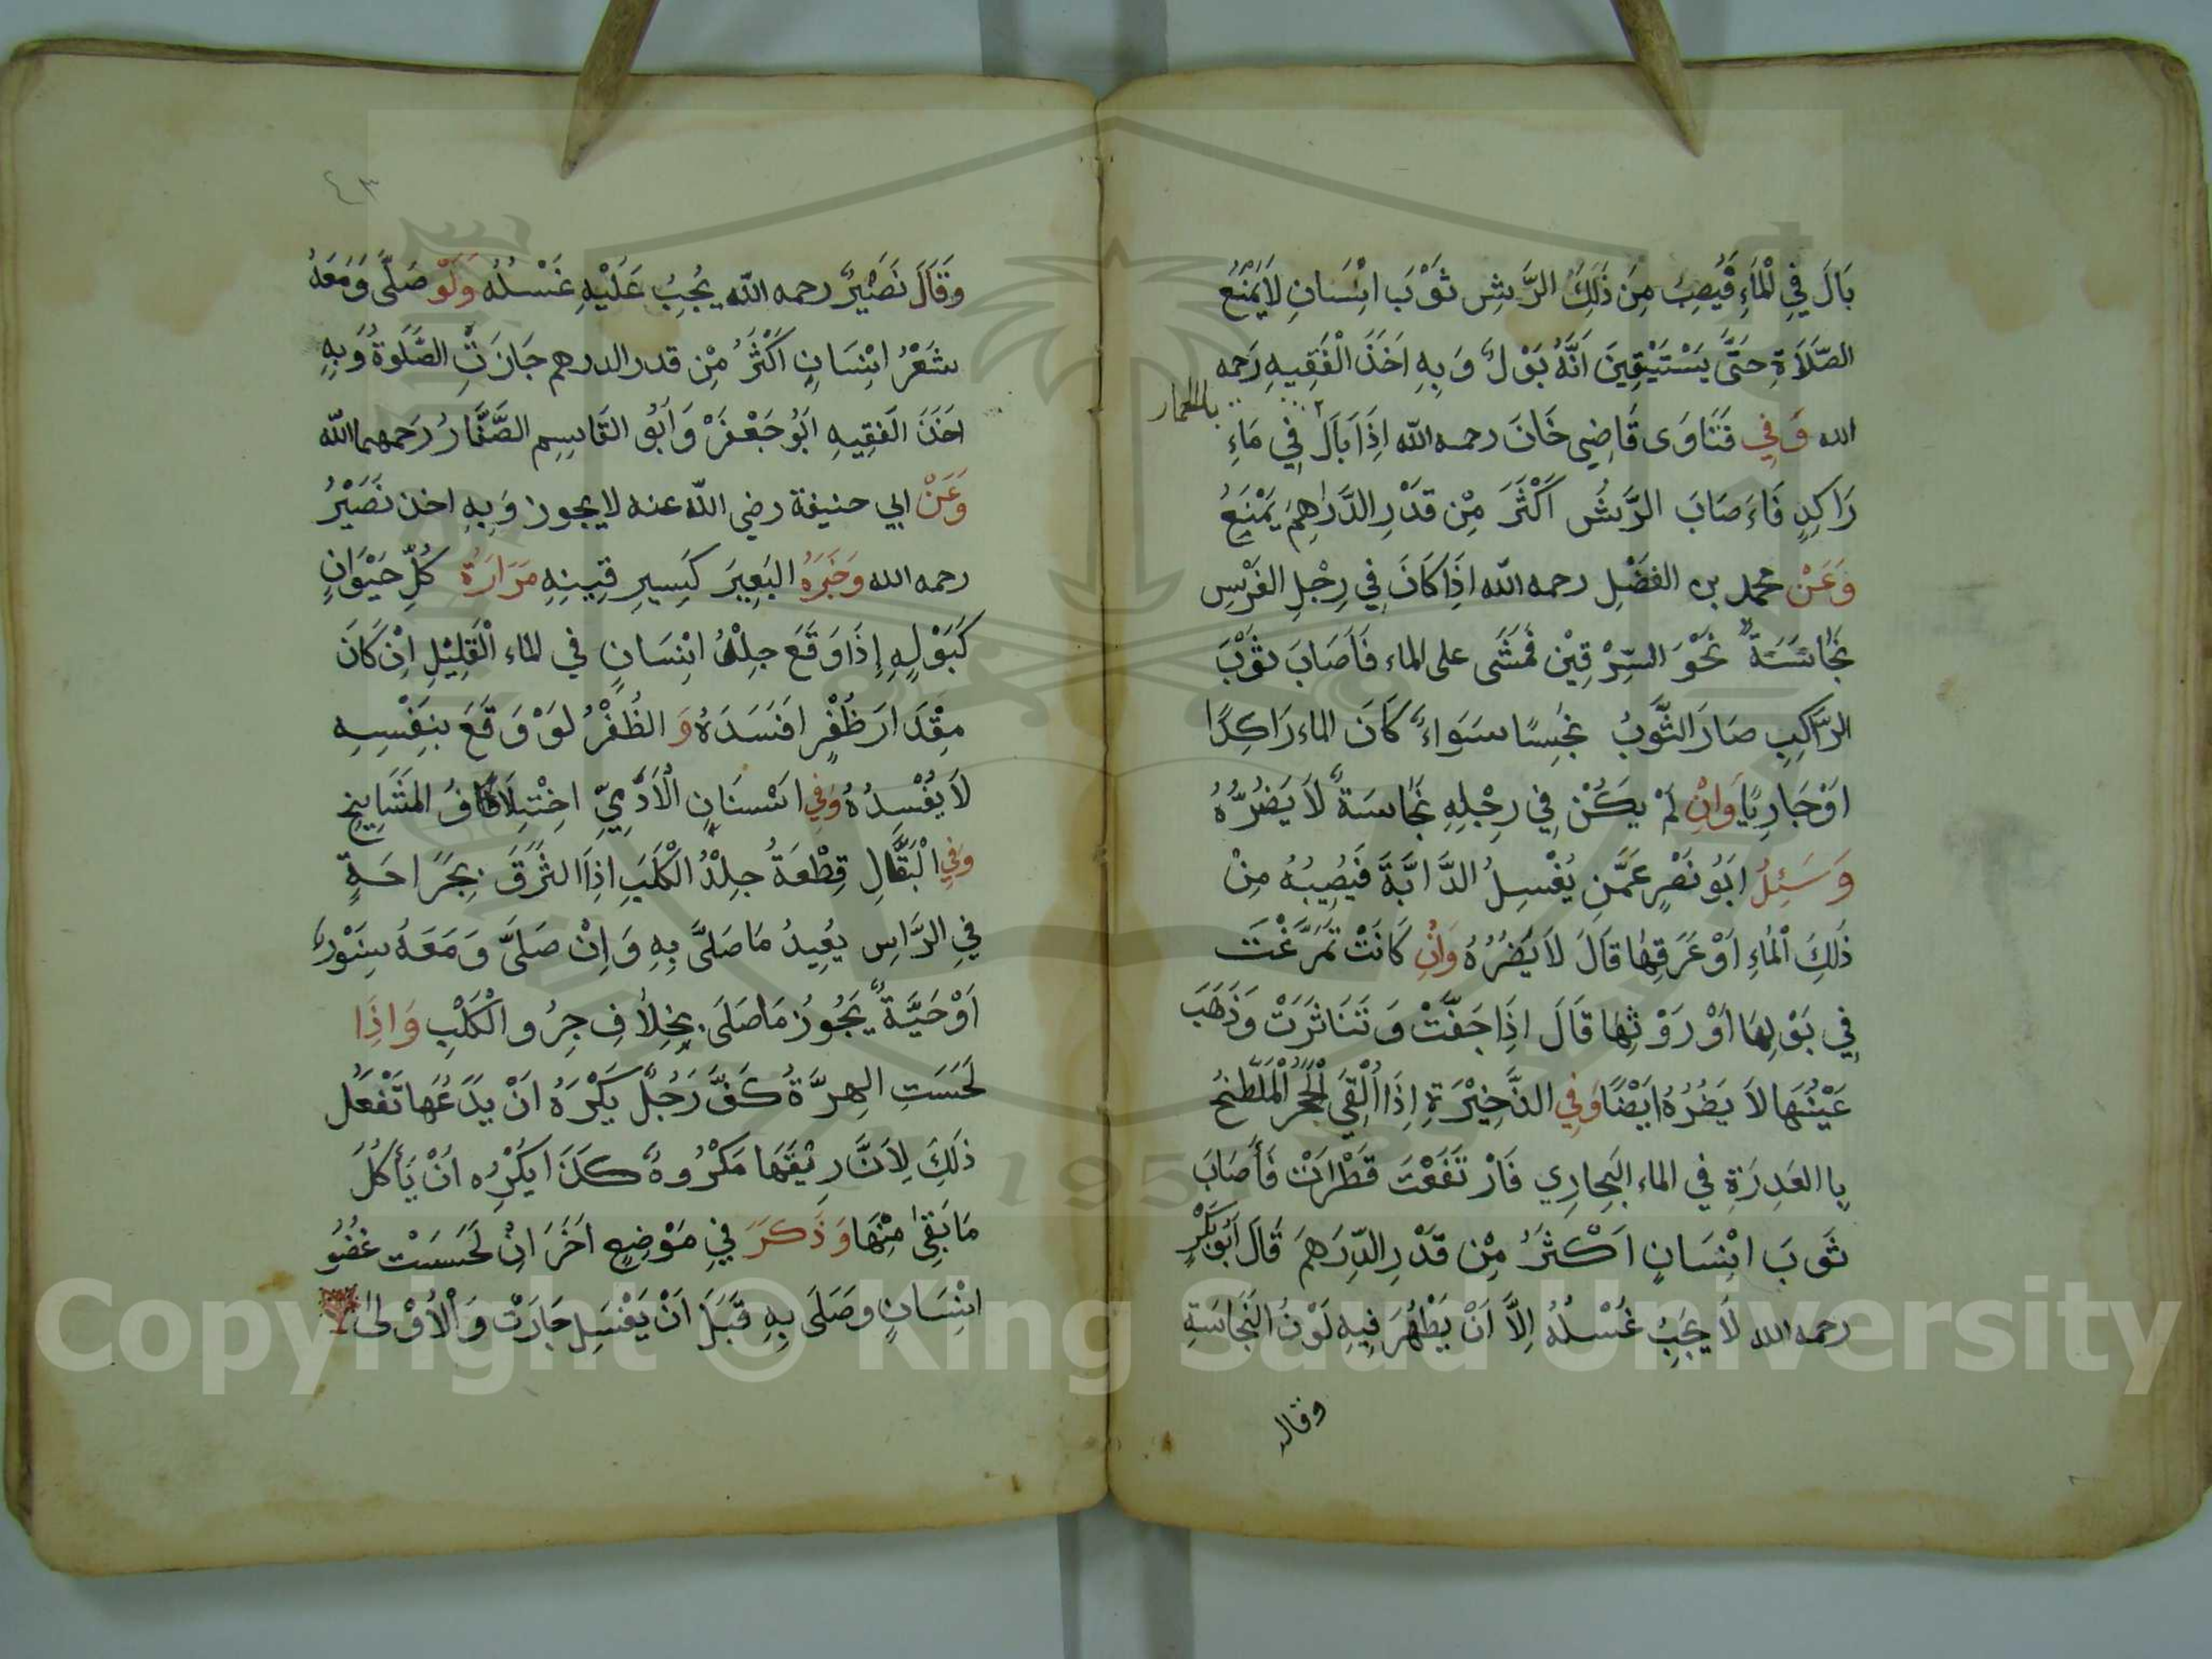 بَالَ فِي الْمَاءِ فَيُصِبُ مِنَ ذَلِكَ الرَّشِ ثَوْبَ انْسَانٍ لَا يَمْنَعُ
الصّلَاةِ حَتَّى يَسْتَيْقِنَ اَنَّهُ بَوْلٌ وَبِهِ اَخَذَ الْفَقِيهِ رَحمه
الله وَفِي فَتَاوَى قَاضِي خَانَ رحمه الله اِذَا بَالَ فِي مَاءِ
بال الحمار
رَاكِدٍ فَاَصَابَ الرَّشُ اَكْثَرَ مِنْ قَدْرِ الدَّرَاهِمِ يَمْنَعُ
وَعَنْ محمد بن الفضْلِ رحمه الله اِذَا كَانَ فِي رِجْلِ الفَرَسِ
نَجَاسَةٌ نَحْوَ السِّرْقِيْن فَمَشَى على الماء فَاَصَابَ ثَوْبَ
الرَّاكِبِ صَارَ الثَّوْبُ نَجِسًا سَوَاءً كَانَ الماء رَاكِدًا
اَوْ جَارِيًا وَاِنْ لَمْ يَكُنْ فِي رِجْلِهِ نَجَاسَةٌ لَا يَضُرُّهُ
وَسَئِلُ ابُو نَصْرٍ عَمَّنِ يَغْسِلُ الدَّابَّةَ فَيُصِيبُهُ مِنْ
ذَلِكَ الْمَاءِ اَوْ عَرَقِهَا قَالَ لَا يَضُرُهُ وَاِنْ كَانَتْ تَمَرَّغَتْ
فِي بَوْلِهَا اَوْ رَوْثِهَا قَالَ اِذَا جَفَّتْ وَتَنَاثَرَتْ وَذَهَبَ
عَيْنُهَا لَا يَضُرُهُ اَيْضًا وَفِي الذَّخِيْرَةِ اِذَا اُلْقَى الْحَجَرُ الْمُلَطَّخُ
بِا العَدِرَةِ في الماء الجارِي فَارْتَفَعْتَ قَطْرَاتْ فَأَصَابَ
ثَوبَ انْسَانٍ اَكْثَرُ مِنْ قَدْرِ الدِّرَهَمَ قَالَ اَبُو بَكْرٍ
رحمه الله لَا يَجِبُ غَسْلُهُ اِلَّا اَنْ يَظْهَرَ فِيهِ لَوْنُ النَجَاسَةِ
وقال
٤٣
وَقَالَ نَصَيْرٌ رحمه الله يُجِبُ عَلَيْهِ غَسْلُهُ وَلَوْ صَلَّى وَمَعَهُ
شَعْرُ انْسَانٍ اَكْثَرُ مِنْ قدر الدرهم جَازَتِ الصَّلَوةُ وَبِهِ
اخَذَ الفَقِيهِ ابُو جَعْفَرْ وَاَبُو القَاسِمِ الصَّفَّارُ رَحمهما الله
وَعَنْ ابي حنيفة رضي الله عنه لا يجوز وَبِهِ اخذ نَصَيْرُ
رحمه الله وَجَرَهُ البَعِيرَ كَسِيرِ قِينِهِ مَرَارَةُ كُلِّ حَيْوَانٍ
كَبَوْلِهِ اِذَا وَقَعَ جِلْدُ انْسَانٍ في الماء الْقَلِيْلِ اِنْ كَانَ
مِقْدَارَ ظُفْرٍ افَسَدَهُ وَ الظُفْرُ لَوْ وَقَعَ بنَفْسِهِ
لَا يُفْسِدُهُ وَفِي اَسْنَانِ الْاَدَمِيِّ اخِتْلَافُ المَشَايخ
وَفِي الْبَقَّالِ قِطْعَةُ جِلْدُ الْكَلْبَ اِذَا التَزَقَ بِجَرَاحَةٍ
فِي الرَّاسِ يُعِيدُ مَا صَلَّى بِهِ وَاِنْ صَلَّى وَمَعَهُ سِنَّوْرٌ
اَوْ حَيَّةٌ يَجُوزُ مَا صَلَى بِخِلَافِ جِرُو الْكَلْبِ وَاِذَا
لَحَسَتِ الهِرَّةُ كَفَّ رَجُلٌ يَكْرَهُ اَنْ يَدَعُهَا تَفْعَلُ
ذَلَكَ لِاَنَّ رِيْقَهَا مَكْرُوهٌ كَذَا يَكْرِه اَنْ يَأكُلَ
مَا بَقِيَ مِنْهَا وَذَكَرَ فِي مَوْضِعٍ اَخَرَ اِنْ لَحَسَتْ عُضُوُ
انْسَانٍ وصَلَى بِهِ قَبَلَ اَنْ يَغْسَلِ جَازَتْ وَالْاَوْلَى